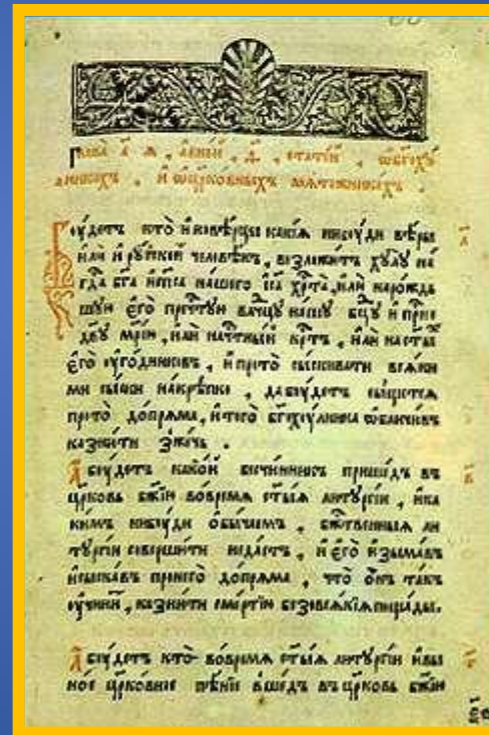 Глава а҃ я, а в ней, д҃, статей, ѡ бг҃оху
лникех, и ѡ цр҃ковных мѧтежникех.
Бꙋдет кто иноверцы какия нибꙋди веры
или и рꙋской человек, возложит хꙋлꙋ на
гда бг҃а и сп҃са нашего іс҃а хр҃та, или на рожд
шꙋю его прч҃тꙋю влчцꙋ нашꙋ бцꙋ и прно
дв҃ꙋ мр҃ию, или на чтный крт҃ъ, или на ст҃ых
его ꙋгодников, и про то сыскивати всѧки
ми сыски накрепко, да бꙋдет сыщется
про то допряма, и того бг҃охꙋлника ѡбличив
казнити зжечь.
А бꙋдет какой бесчинник пришед в
цр҃ковь бж҃ию во время ст҃ыя литꙋргии, и ка
ким нибꙋди обычаем, бж҃ственныя ли
тꙋргии совершити не даст, и его изымав
и сыскав про него допряма, что он так
ꙋчинит, казнити смертию безо всякия пощады.
А бꙋдет кто во время ст҃ыя литꙋргии и в ы
ное цр҃ковное пение вшед в цр҃ковь бж҃ию